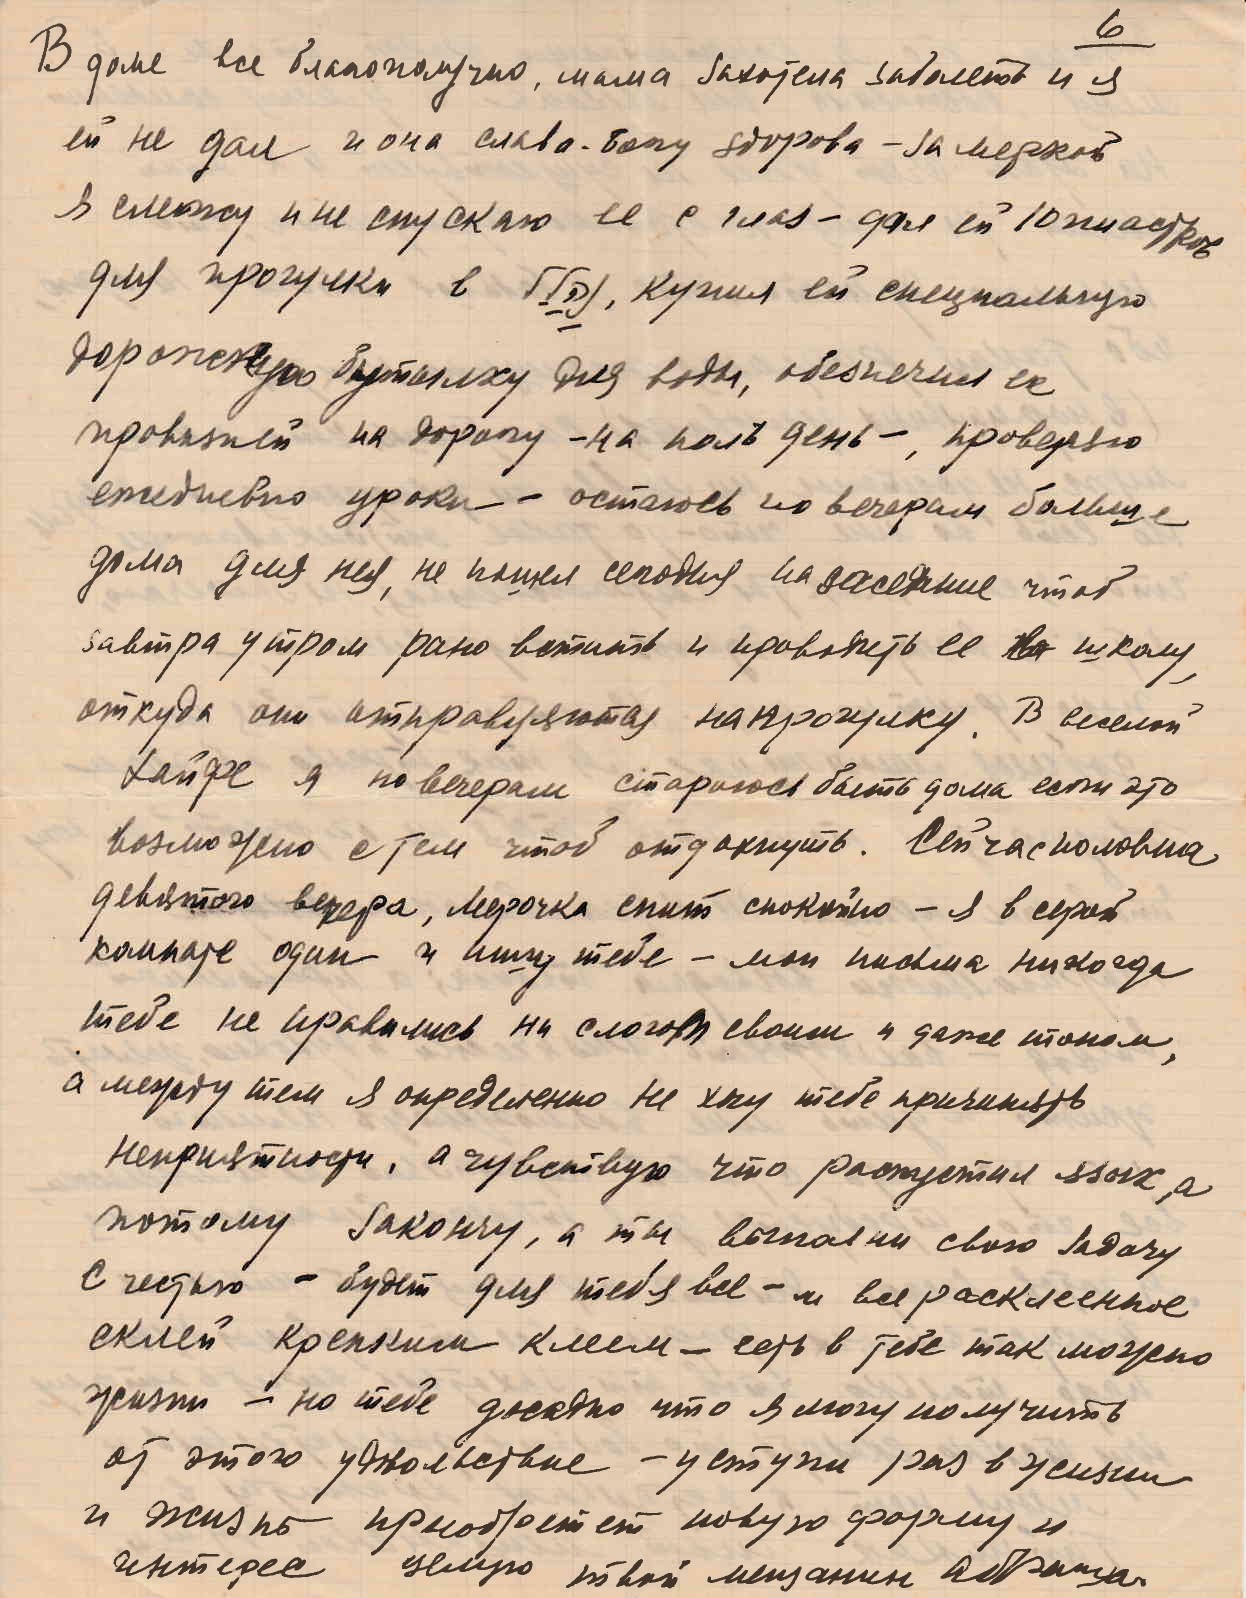 6
В доме все благополучно, мама захотела заболеть и я
ей не дал и она слава-богу здорова – за меркой
я слежу и не спускаю ее с глаз – дал ей 10 пиастров
для прогулки в купил ей специальную
дорожную бутылку для воды, обезпечил ее
провизией на дорогу – на полъ день –, проверяю
ежедневно уроки – остаюсь по вечерам больше
дома для нея, не пошел сегодня на заседание чтоб
завтра утром рано встать и проводить ее в школу,
откуда они отправляются на прогулку. В веселой
Хайфе я по вечерам стараюсь быть дома если это
возможно с тем чтоб отдохнуть. Сейчас половина
девятого вечера, Мерочка спит спокойно – я в серой
комнате один и пишу тебе – мои письма никогда
тебе не нравились ни слогом своим и даже тоном,
а между тем я определенно не хочу тебе причинять
неприятности, а чувствую что распустил язык, а
потому закончу, а ты выполни свою задачу
с честью – будет для тебя все – и все расклеенное
склей крепким клеем – есть в тебе так много
жизни – но тебе досадно что я могу получить
от этого удовольствие – уступи раз в жизни
и жизнь приобретет новую форму и
интерес целую твой мещанин Абраша.